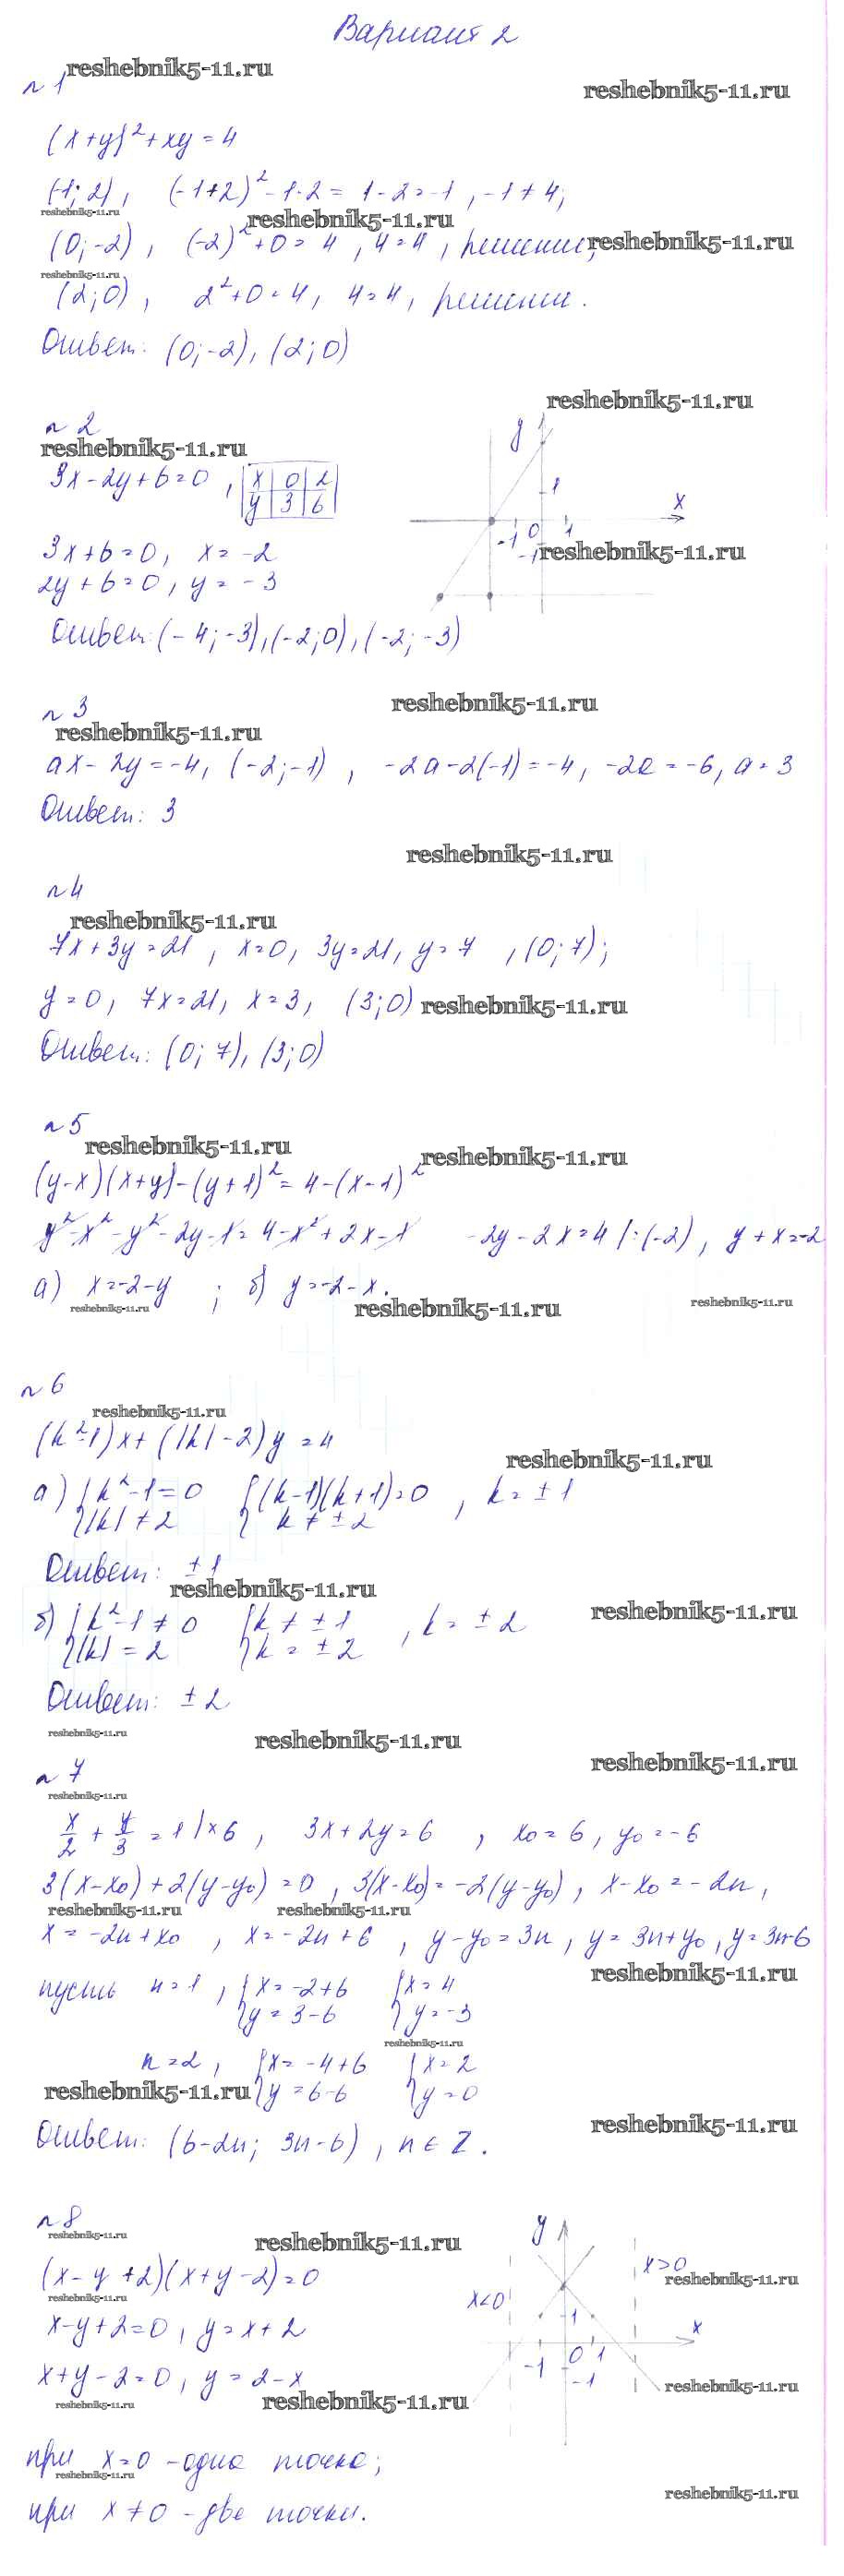 Вариант 2
reshebnik5-11.ru
n 1
reshebnik5-11.ru
(x+y)²+xy=4
(-1; 2), (-1+2)²-1·2=1-2=-1, -1≠4;
reshebnik5-11.ru
reshebnik5-11.ru
(0;-2), (-2)²+0=4, 4=4, решение;
reshebnik5-11.ru
reshebnik5-11.ru
(2;0), 2²+0=4, 4=4, решении.
Ответ: (0;-2), (2;0)
reshebnik5-11.ru
n 2
reshebnik5-11.ru
3x-2y+6=0, x 0 2
y 3 6
y 1
1
x
-1 0 1
-1
reshebnik5-11.ru
3x+6=0, x=-2
2y+6=0, y=-3
Ответ: (-4;-3), (-2;0), (-2;-3)
n 3
reshebnik5-11.ru
reshebnik5-11.ru
ax-2y=-4, (-2;-1), -2a-2(-1)=-4, -2a=-6, a=3
Ответ: 3
reshebnik5-11.ru
n 4
reshebnik5-11.ru
7x+3y=21, x=0, 3y=21, y=7, (0;7);
y=0, 7x=21, x=3, (3;0)
reshebnik5-11.ru
Ответ: (0;7), (3;0)
n 5
reshebnik5-11.ru
reshebnik5-11.ru
(y-x)(x+y)-(y+1)²=4-(x-1)²
y²-x²-y²-2y-1=4-x²+2x-1 -2y-2x=4 |:(-2), y+x=-2
а) x=-2-y; б) y=-2-x.
reshebnik5-11.ru
reshebnik5-11.ru
reshebnik5-11.ru
n 6
reshebnik5-11.ru
(k²-1)x+(|k|-2)y=4
reshebnik5-11.ru
а) {k²-1=0 {(k-1)(k+1)=0, k=±1
{|k|≠2 { k≠±2
Ответ: ±1
reshebnik5-11.ru
reshebnik5-11.ru
б) {k²-1≠0 {k≠±1, k=±2
{|k|=2 {k=±2
Ответ: ±2
reshebnik5-11.ru
reshebnik5-11.ru
reshebnik5-11.ru
n 7
reshebnik5-11.ru
x/2+y/3=1 |×6, 3x+2y=6, x₀=6, y₀=-6
3(x-x₀)+2(y-y₀)=0, 3(x-x₀)=-2(y-y₀), x-x₀=-2n,
reshebnik5-11.ru
reshebnik5-11.ru
x=-2n+x₀, x=-2n+6, y-y₀=3n, y=3n+y₀, y=3n-6
reshebnik5-11.ru
пусть n=1, {x=-2+6 {x=4
{y=3-6 {y=-3
reshebnik5-11.ru
n=2, {x=-4+6 {x=2
reshebnik5-11.ru
{y=6-6 {y=0
reshebnik5-11.ru
Ответ: (6-2n; 3n-6), n∈Z.
n 8
reshebnik5-11.ru
reshebnik5-11.ru
(x-y+2)(x+y-2)=0
reshebnik5-11.ru
x-y+2=0, y=x+2
x+y-2=0, y=2-x
reshebnik5-11.ru
reshebnik5-11.ru
y
x>0
reshebnik5-11.ru
x<0
1
x
-1 0 1
-1
reshebnik5-11.ru
при x=0 - одна точка;
reshebnik5-11.ru
reshebnik5-11.ru
при x≠0 - две точки.